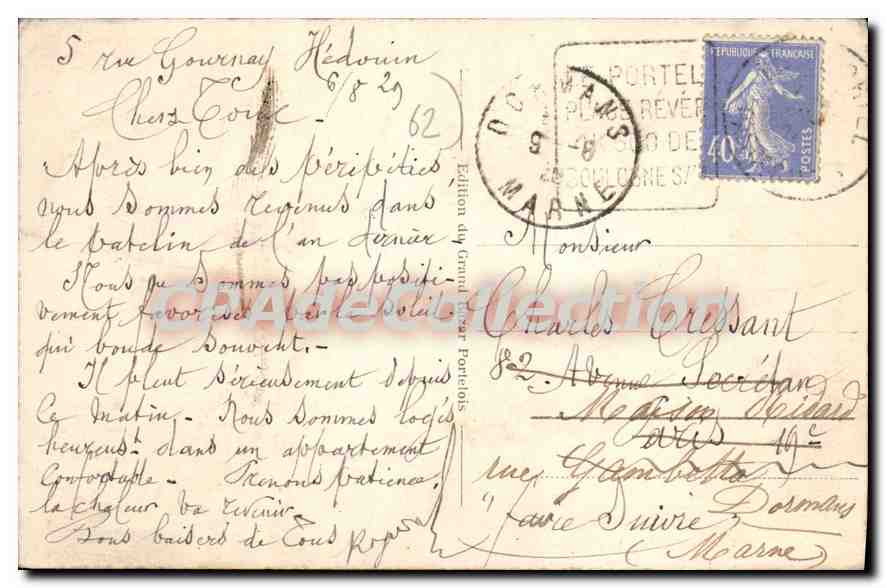 5 rue Gournay Hédouin
6/8 29
Chers Tous
62
Après bien des péripéties
nous sommes revenus dans
le patelin de l'an dernier
Nous ne sommes pas positi-
vement favorisés par le soleil
qui boude souvent.-
Il pleut sérieusement depuis
ce matin - Nous sommes logés
heureust dans un appartement
confortable - Prenons patience
la chaleur va revenir
Bons baisers de Tous Roger
Edition du Grand Bazar Portelois
DORMANS
9 -8
29
MARNE
LE PORTEL
PLAGE RÊVÉE
AU SUD DE
BOULOGNE S/
REPUBLIQUE FRANÇAISE
40c
POSTES
CPADeCollection
Monsieur
Charles Cressant
82 Avenue Secrétan
Maison
Paris 19e
rue Gambetta
Dormans
faire Suivre
(Marne)